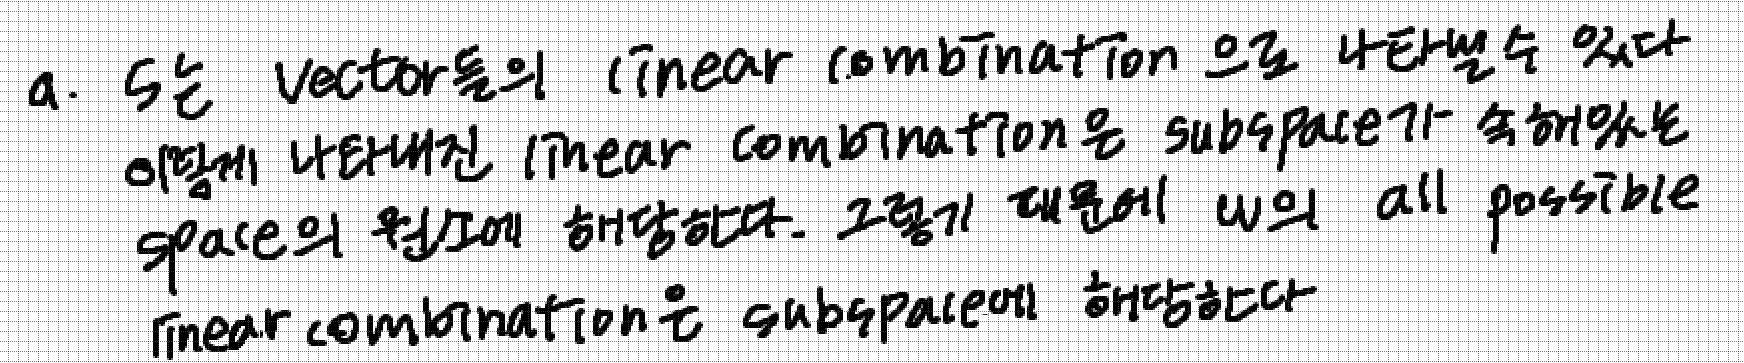 a. S는 vector들의 linear combination 으로 나타낼 수 있다
이렇게 나타내진 linear combination은 subspace가 속해있는
space의 원소에 해당한다. 그렇기 때문에 w의 all possible
linear combination은 subspace에 해당한다